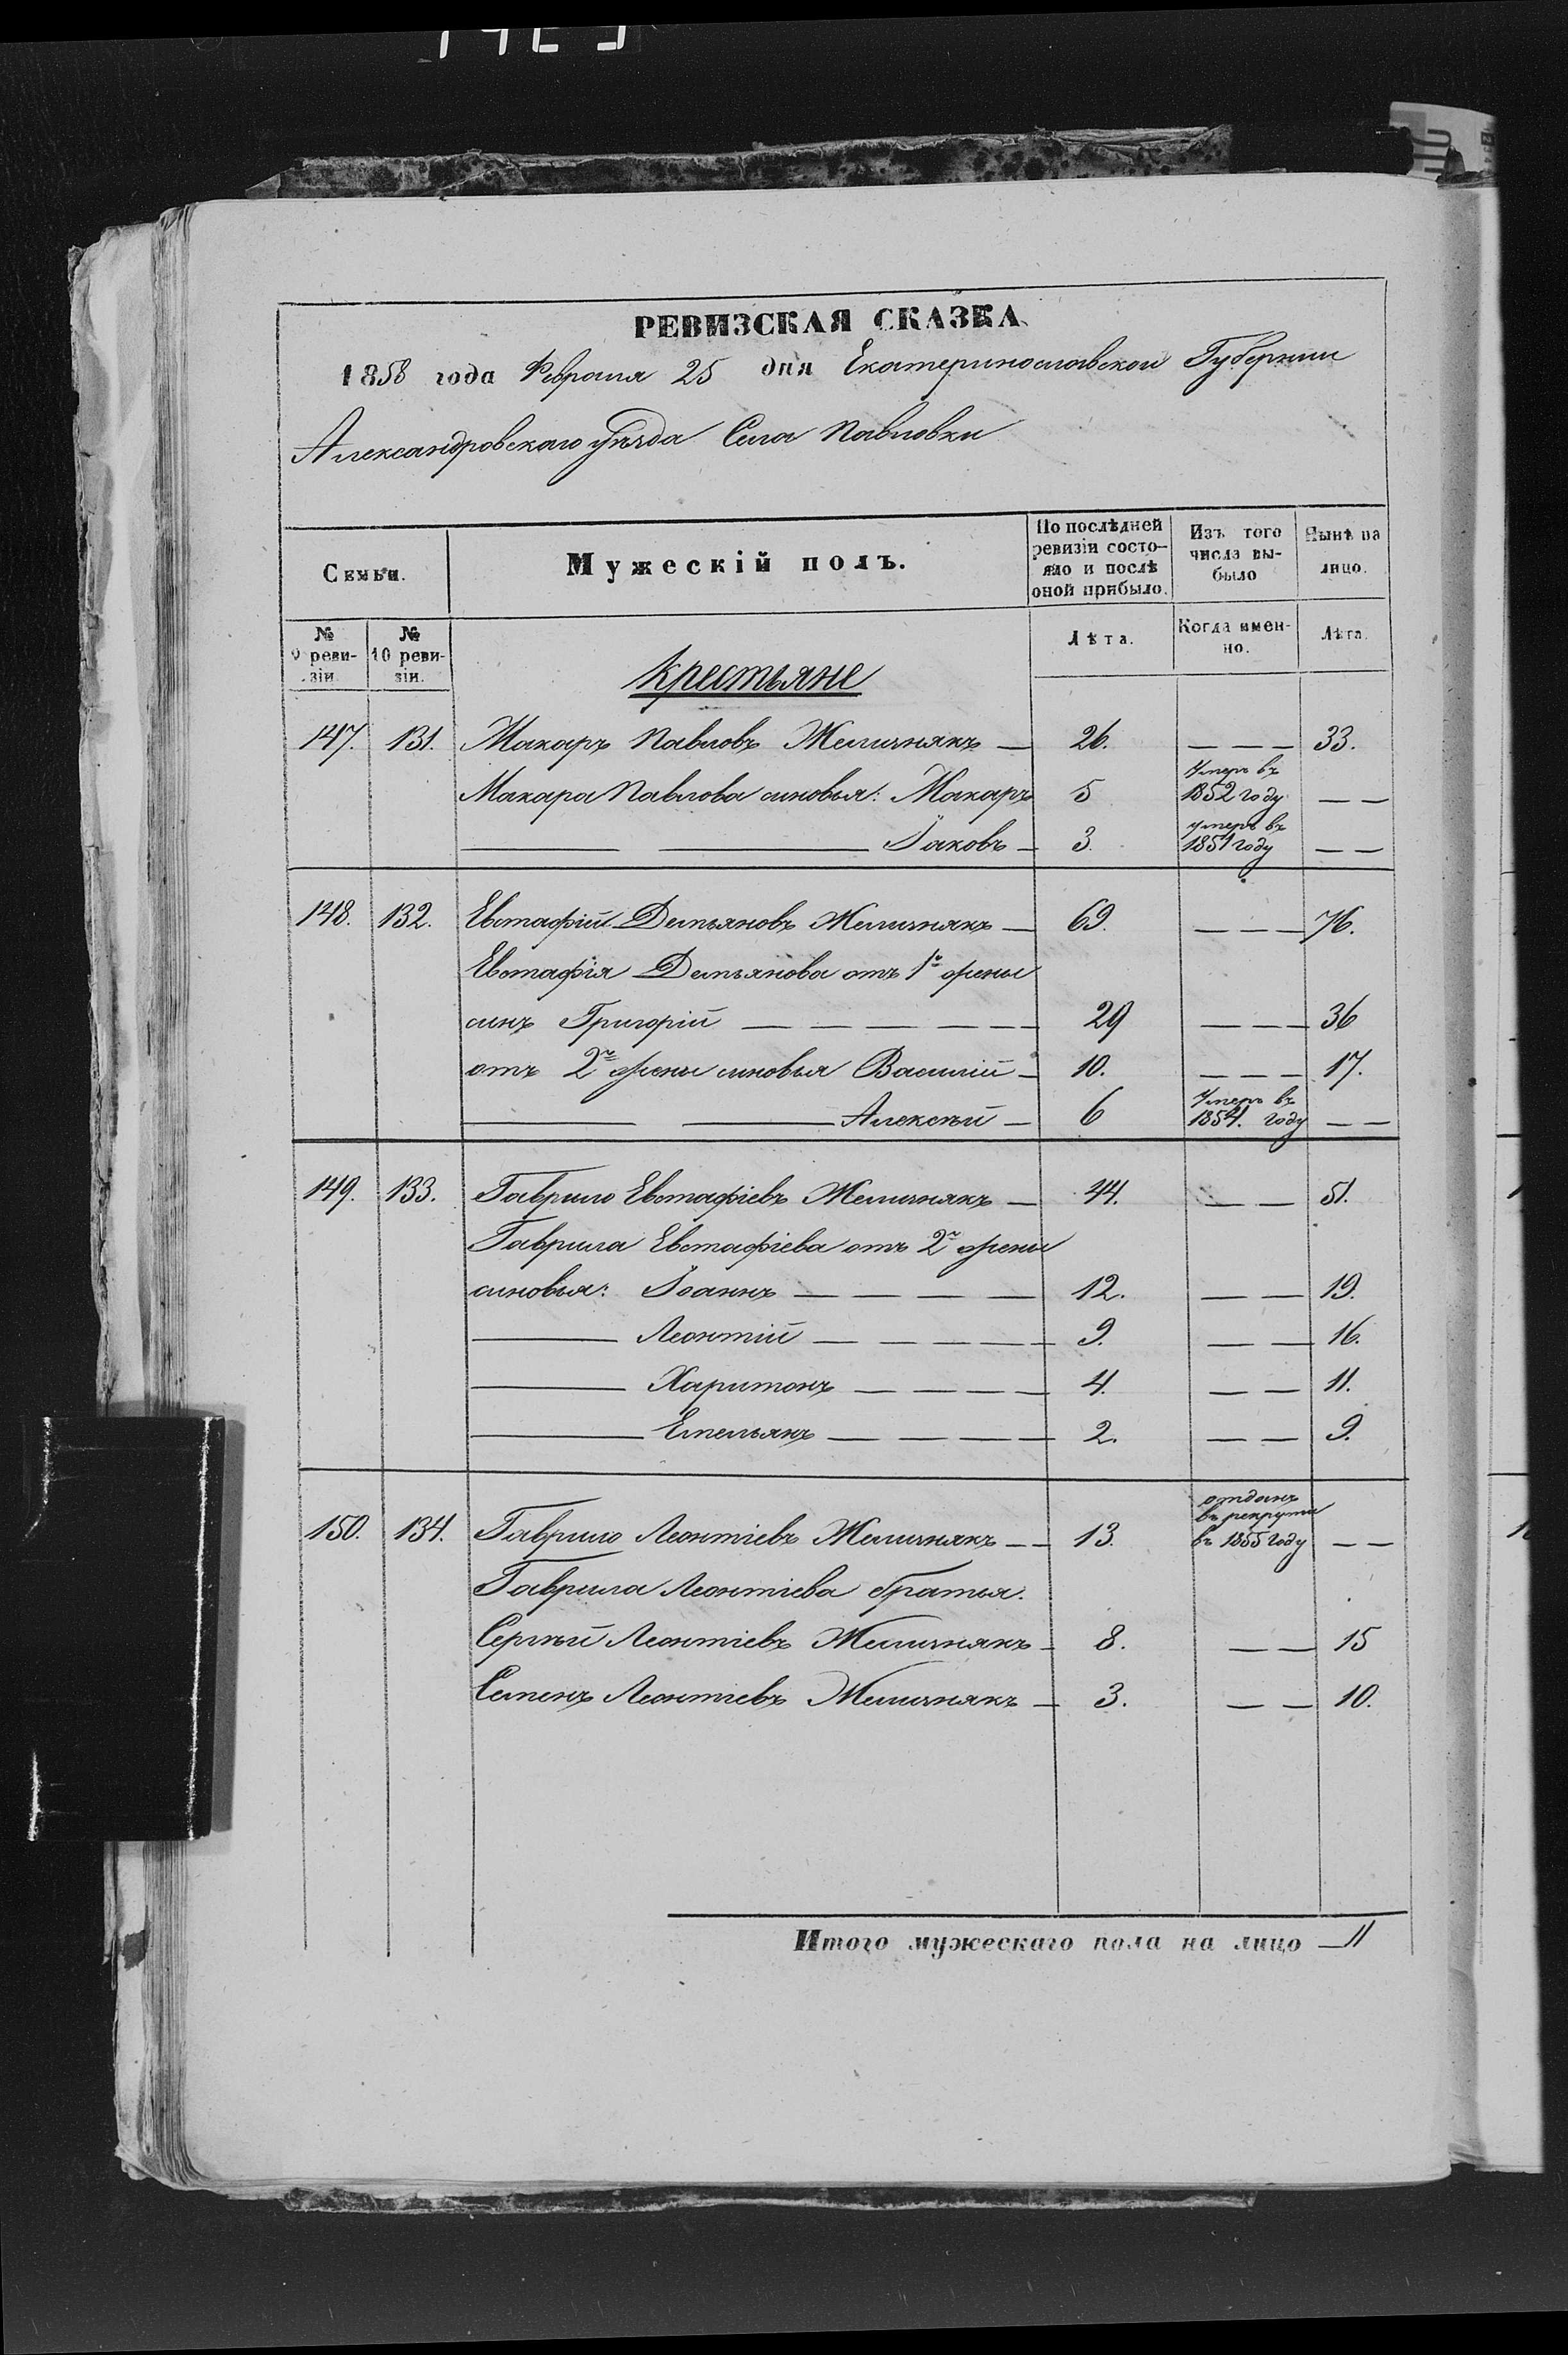 РЕВИЗСКАЯ СКАЗКА
1858 года Февраля 25 дня Екатеринославской Губернии
Александровскаго уѣзда Села Павловки
Семьи.
Мужескій полъ.
По послѣдней ревизіи состояло и послѣ оной прибыло.
Изъ того числа выбыло
Нынѣ на лицо.
№ 9 ревизіи.
№ 10 ревизіи.
Лѣта.
Когда именно.
Лѣта.
Крестьяне
147. 131. Макаръ Павловъ Желизнякъ — 26. — — — 33.
Макара Павлова синовья: Макаръ 5 Умеръ въ 1852 году — —
Іаковъ — 3. умеръ въ 1851 году — —
148. 132. Евстафій Демьяновъ Желизнякъ — 69. — — — 76.
Евстафія Демьянова отъ 1й жены
синъ Григорій — — — — — — 29 — — — 36
отъ 2й жены синовья Василій — 10. — — — 17.
Алексѣй — 6 Умеръ въ 1854. году — —
149. 133. Гаврило Евстафіевъ Желизнякъ — 44. — — 51.
Гаврила Евстафіева отъ 2й жены
синовья: Іоаннъ — — — — 12. — — 19.
Леонтій — — — — — 9. — — 16.
Харитонъ — — — — 4. — — 11.
Емельянъ — — — — — 2. — — 9.
150. 134. Гаврило Леонтіевъ Желизнякъ — — 13. отданъ въ рекруты въ 1855 году — —
Гаврила Леонтіева братья.
Сергѣй Леонтіевъ Желизнякъ — 8. — — 15
Семенъ Леонтіевъ Желизнякъ — 3. — — 10.
Итого мужескаго пола на лицо — 11